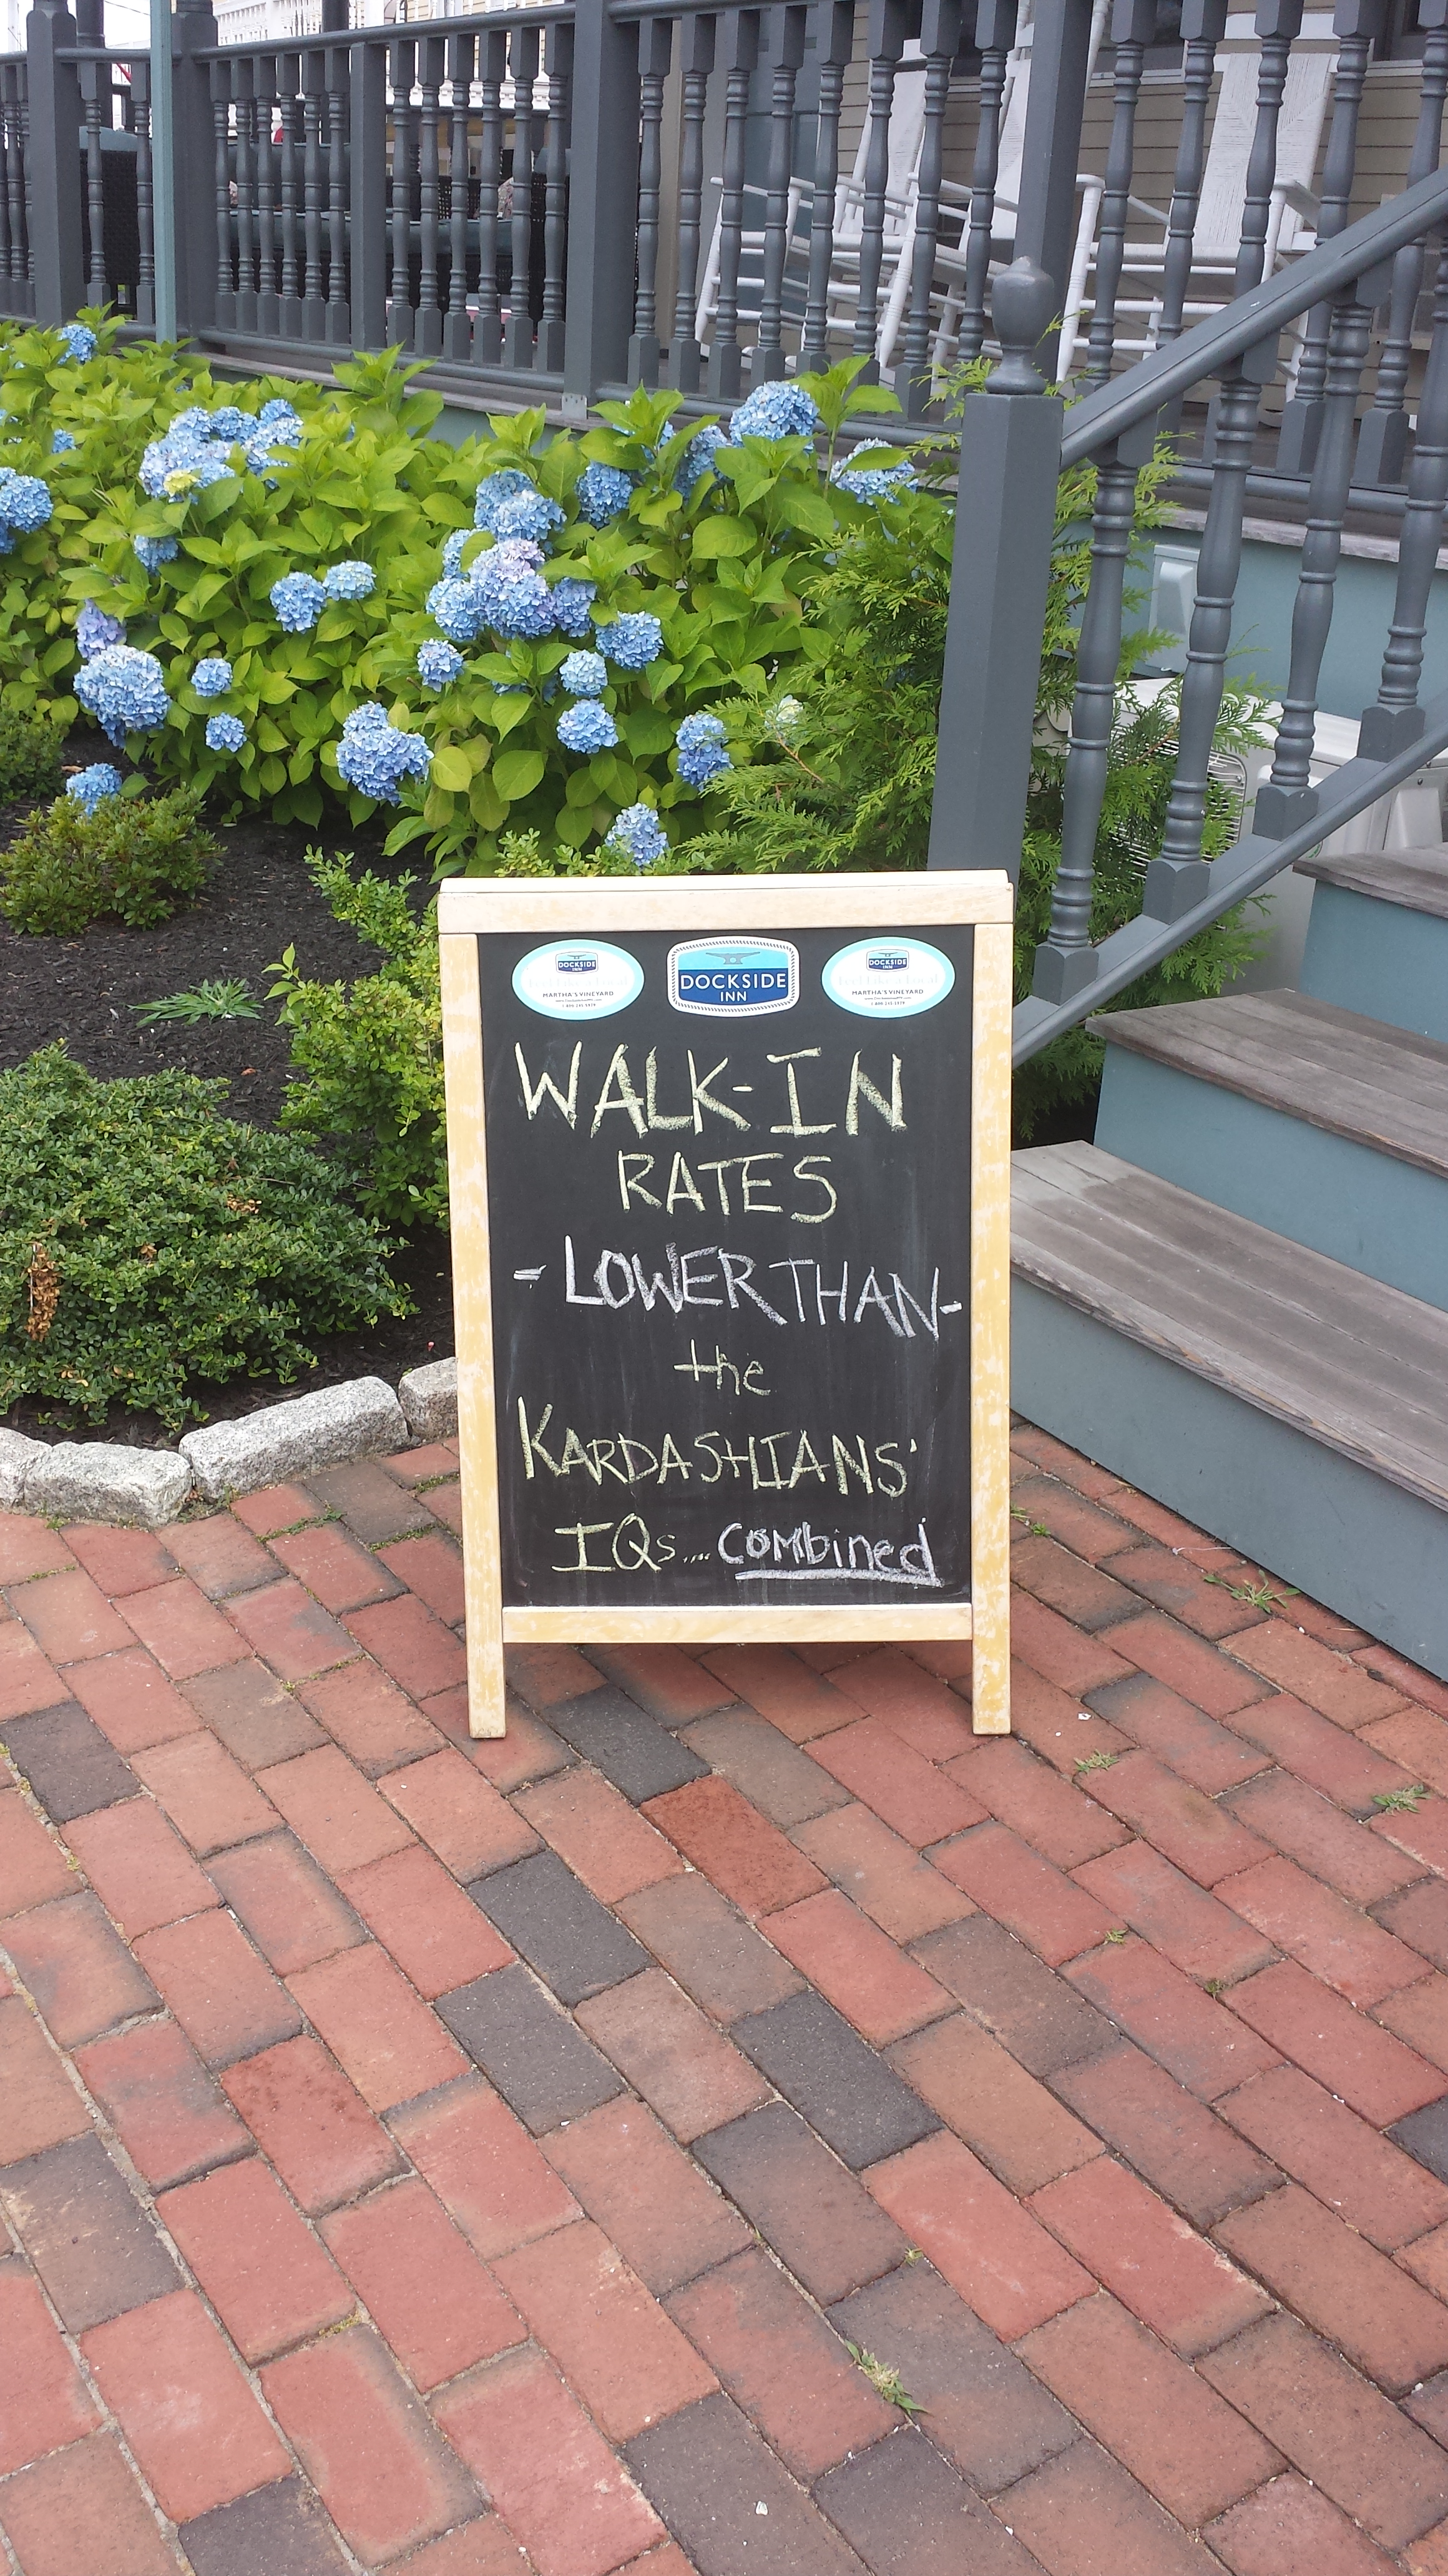 DOCKSIDE
INN
MARTHA'S VINEYARD
DOCKSIDE
INN
DOCKSIDE
INN
MARTHA'S VINEYARD
WALK-IN
RATES
- LOWER THAN -
the
KARDASHIANS'
IQs.... combined